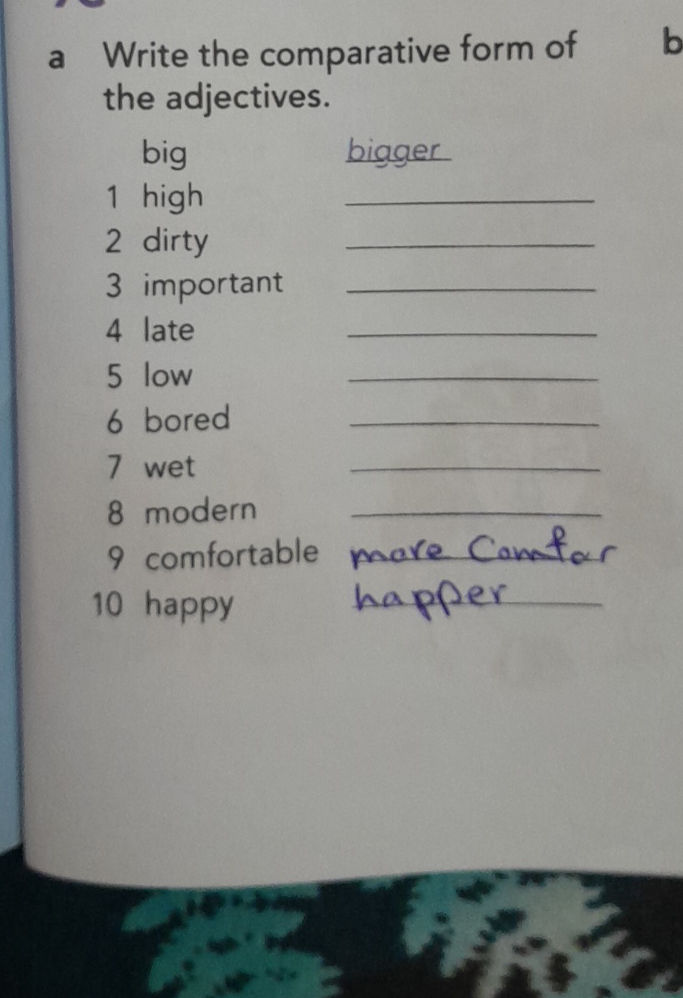 a Write the comparative form of
the adjectives.
b
big bigger
1 high
2 dirty
3 important
4 late
5 low
6 bored
7 wet
8 modern
9 comfortable more Comfor
10 happy happer